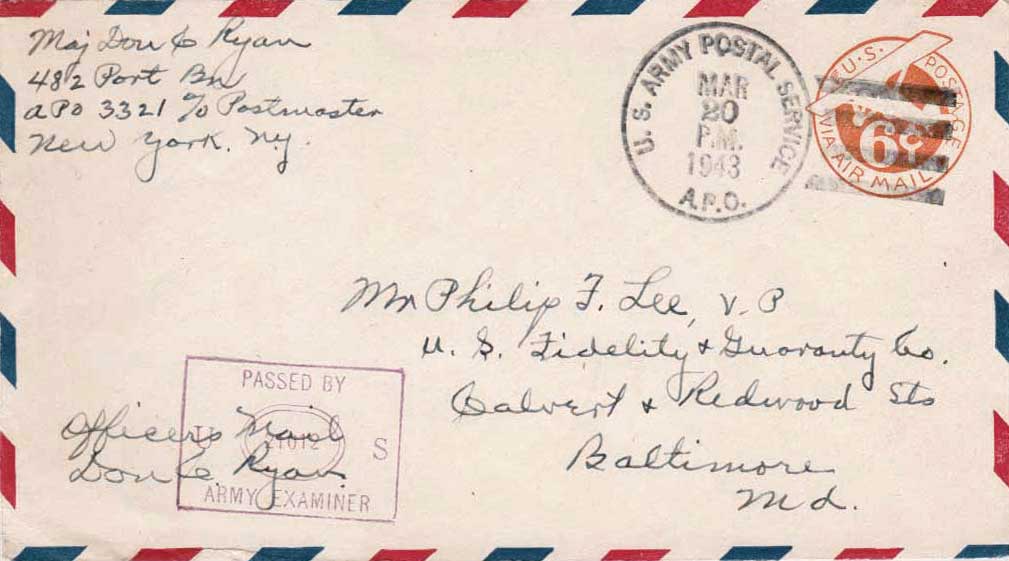 Maj Don C Ryan
482 Port Bn
APO 3321 c/o Postmaster
New York. N.y.
U. S. ARMY POSTAL SERVICE
MAR
20
P.M.
1943
A.P.O.
U.S. POSTAGE
6¢
VIA AIR MAIL
Mr Philip F. Lee, V. P
U. S. Fidelity & Guaranty Co.
Calvert & Redwood Sts
Baltimore
Md.
PASSED BY
U S
ARMY EXAMINER
Officers Mail
Don C. Ryan